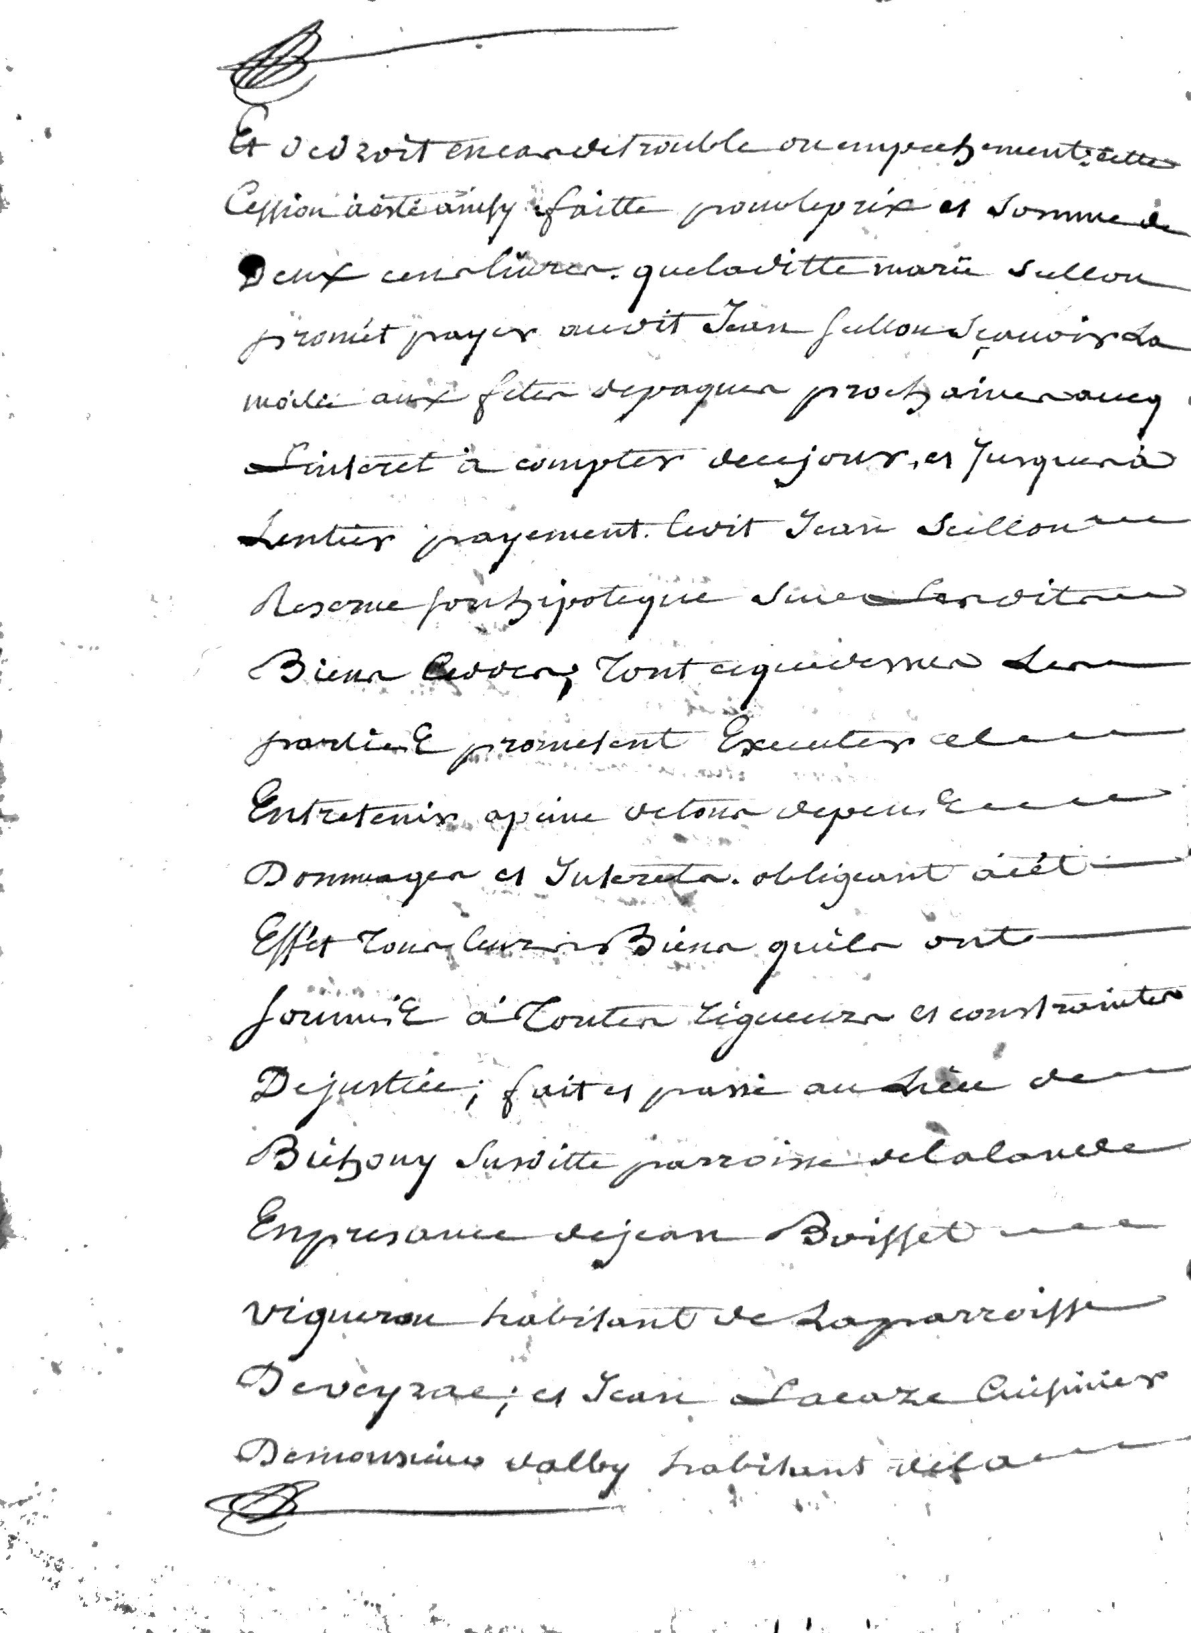 Et dedroit encas detrouble ou empechement; cette
Cession à esté ainsy faitte pour leprix et Somme de
Deux cens livres. queladitte marie Sullou
promet payer audit Jean Sullou Sçavoir La
moitié aux fetes depaques prochaines avecq
Linteret à compter decejour, et Jusques à
Lentier payement. ledit Jean Sullou
Reserve son hipoteque Sur Lesdits
Biens Ceddes; Tout cequedessus Les
partiés prometent Executer et
Entretenir apeine detous depens
Dommages et Interets. obligeant à cét
Effét Tous leurs Biens quils ont
soumis á Toutes rigueurs et constraintes
Dejustice; fait et passé au Lieu de
Biéhouy Susditte parroisse delalande
Enpresance dejean Boisset
vigneron habitant de Laparroisse
Deveyrac; et Jean Lacaze Cuisinier
Demonsieur dalby habitant dela